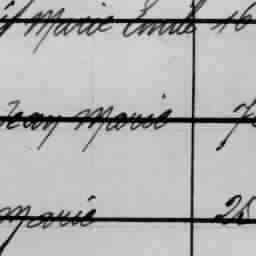 Marie Emile 16
Jean Marie
Marie 25